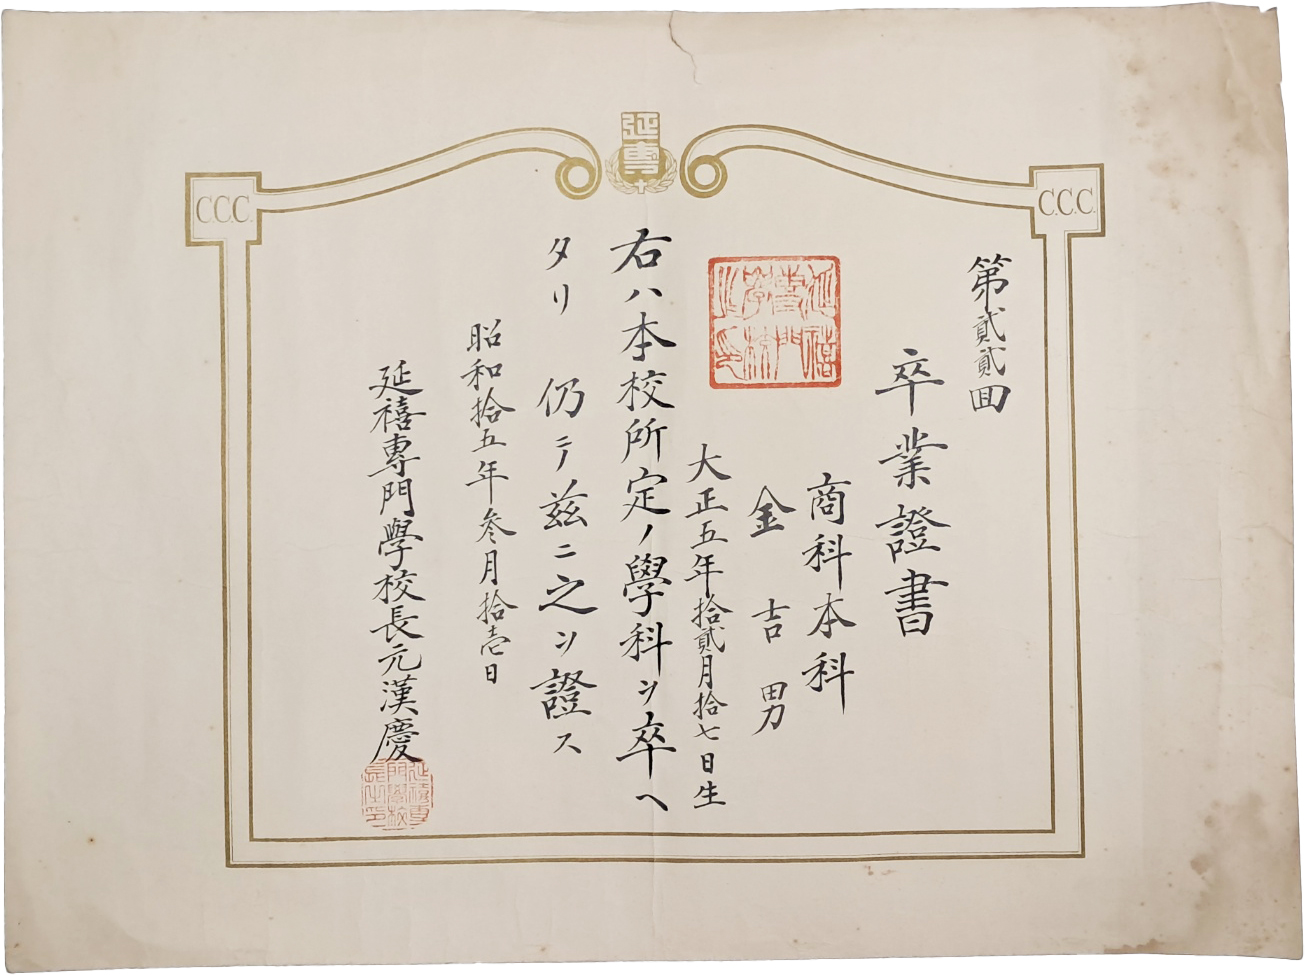 延專
C.C.C.
C.C.C.
第貳貳回
卒業證書
商科本科
金吉男
大正五年拾貳月拾七日生
右ハ本校所定ノ學科ヲ卒ヘ
タリ仍テ茲ニ之ヲ證ス
昭和拾五年叄月拾壱日
延禧專門學校長元漢慶
延禧
專門
學校
之印
延禧專
門學校
長之印